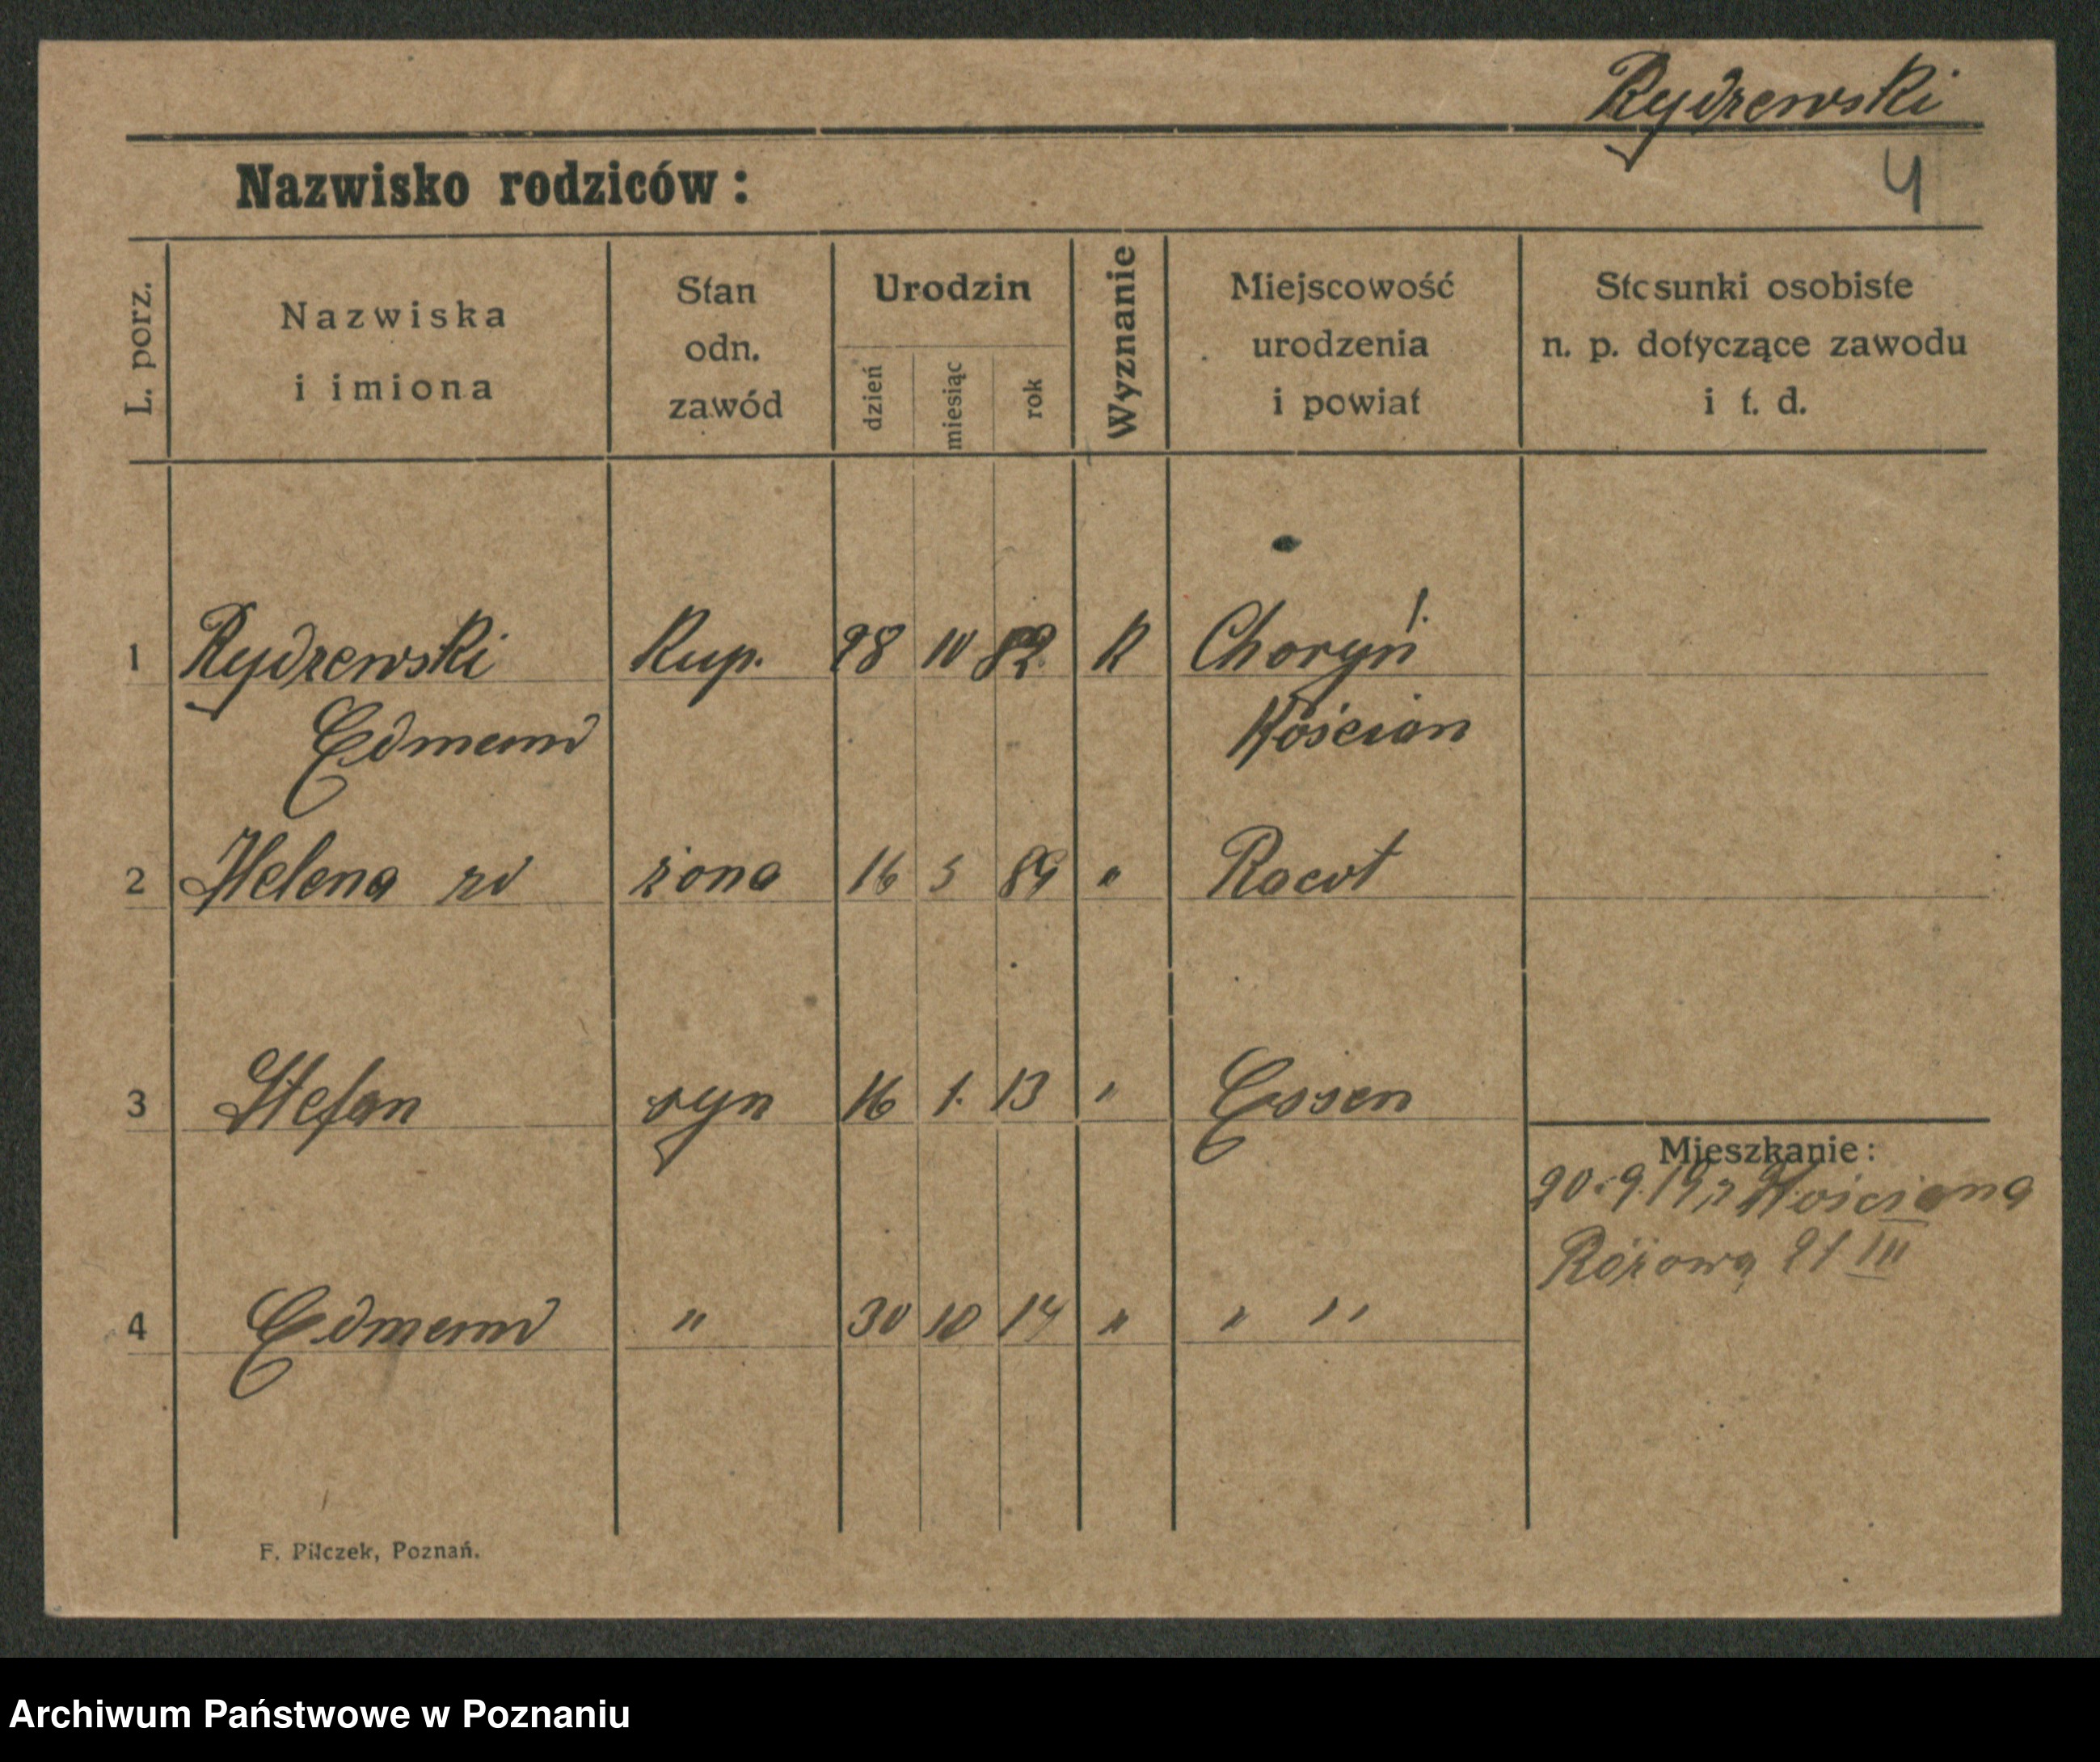 Rydzewski
4
Nazwisko rodziców:
L. porz.
Nazwiska
i imiona
Stan
odn.
zawód
Urodzin
dzień
miesiąc
rok
Wyznanie
Miejscowość
urodzenia
i powiat
Stosunki osobiste
n. p. dotyczące zawodu
i t. d.
1 Rydzewski Kup. 28 10 82 K Choryń
Edmund Kościan
2 Helena żona 16 5 89 " Racot
3 Stefan syn 16 1. 13 " Essen
Mieszkanie:
20.9.19 z Kościana
Różowa 21 III
4 Edmund " 30 10 14 " " "
F. Pilczek, Poznań.
Archiwum Państwowe w Poznaniu